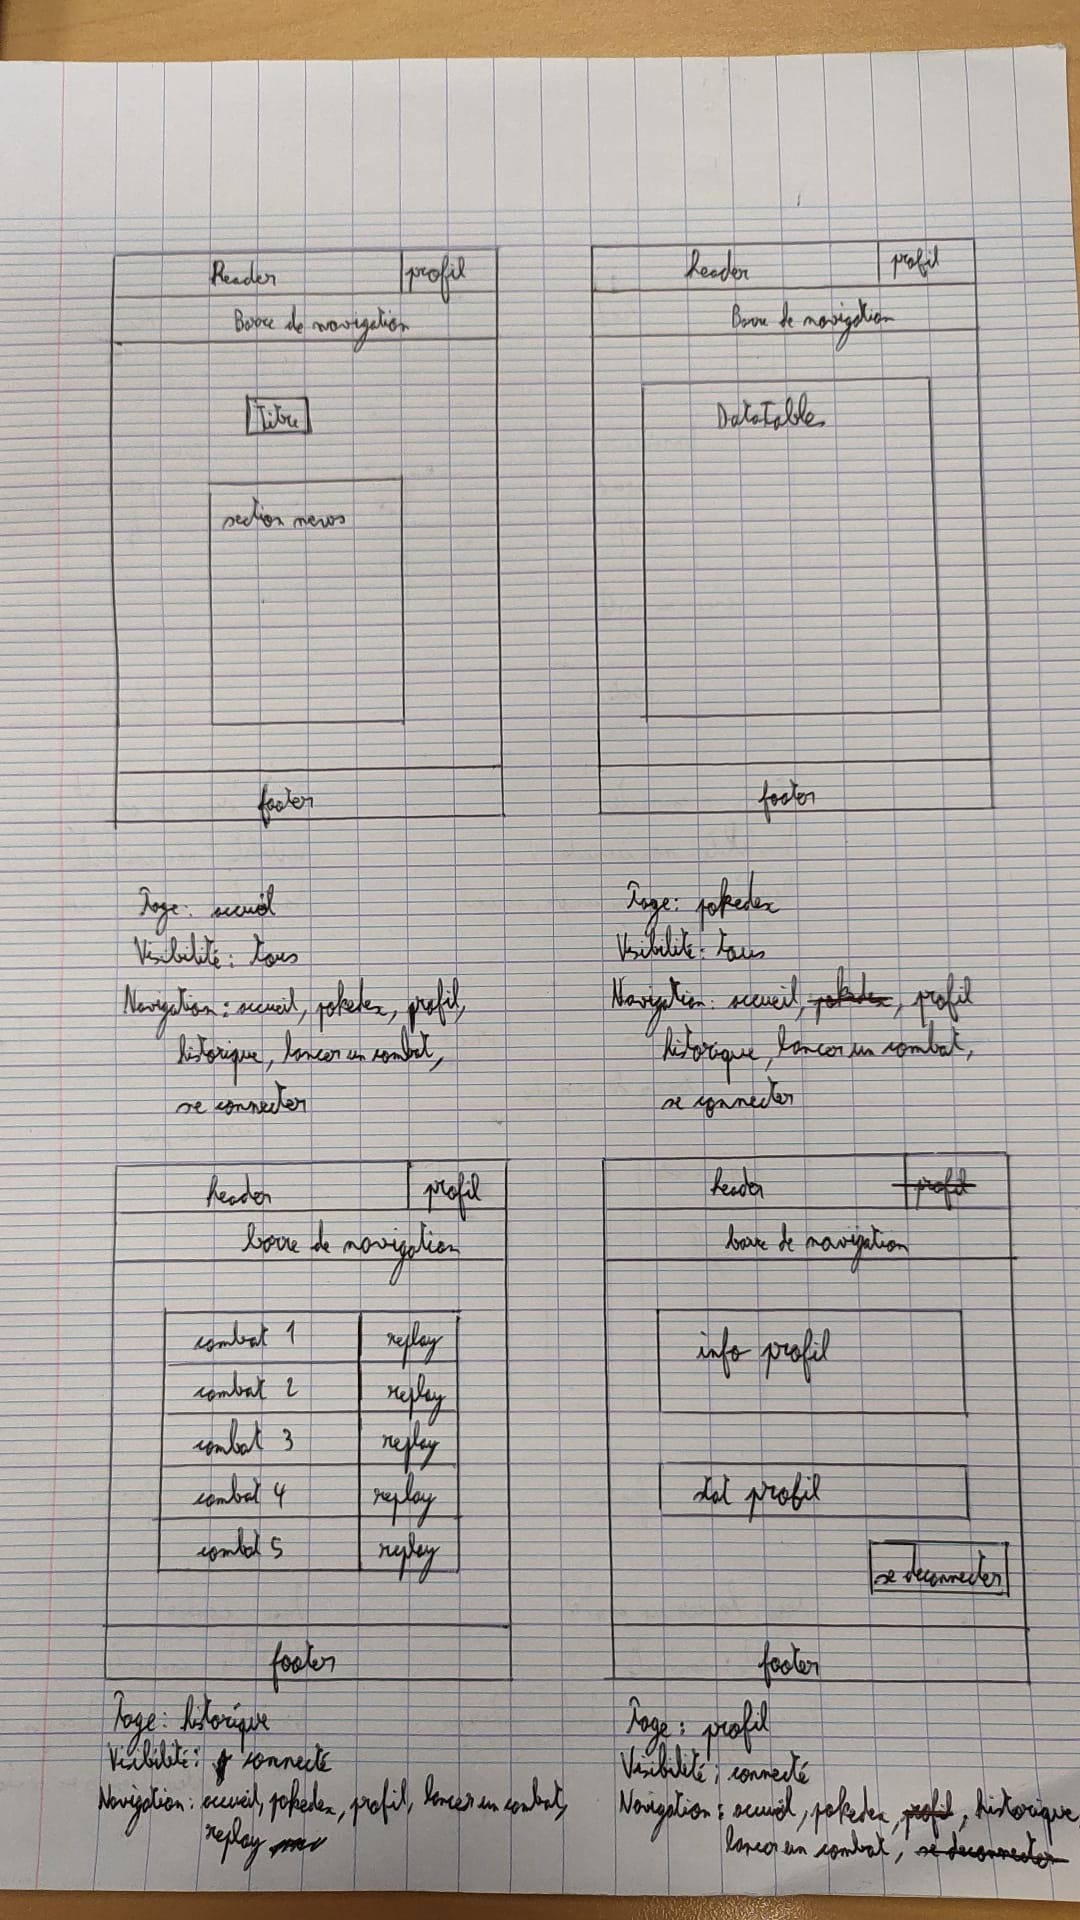 Header profil
Barre de navigation
Titre
section news
footer
Page: accueil
Visibilité: tous
Navigation: accueil, pokedex, profil,
historique, lancer un combat,
se connecter
header profil
Barre de navigation
Datatables
footer
Page: pokedex
Visibilité: tous
Navigation: accueil, pokedex, profil
historique, lancer un combat,
se connecter
header profil
barre de navigation
combat 1 replay
combat 2 replay
combat 3 replay
combat 4 replay
combat 5 replay
footer
Page: historique
Visibilité: connecté
Navigation: accueil, pokedex, profil, lancer un combat,
replay
header profil
barre de navigation
info profil
stat profil
se deconnecter
footer
Page: profil
Visibilité: connecté
Navigation: accueil, pokedex, profil, historique,
lancer un combat, se deconnecter